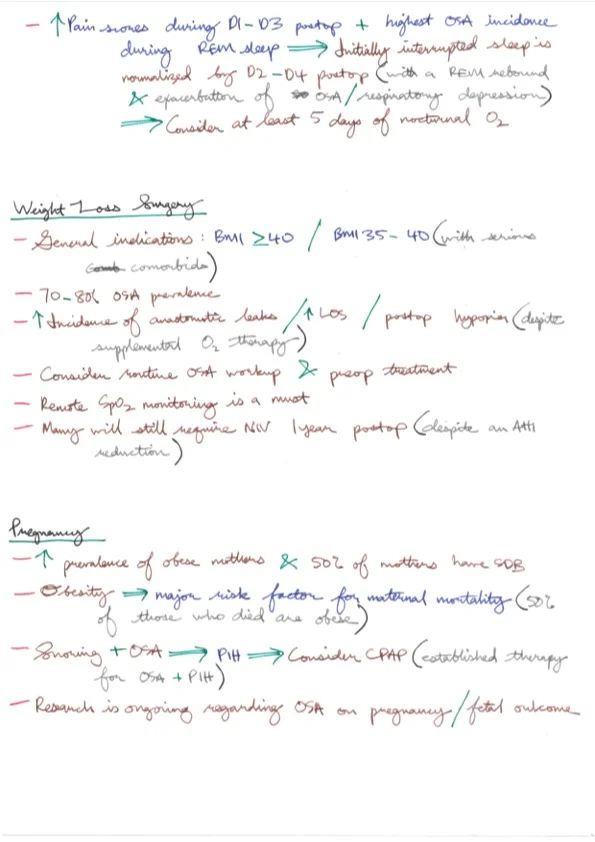 – ↑ Pain scores during D1–D3 postop + highest OSA incidence
during REM sleep ⟹ Initially interrupted sleep is
normalized by D2–D4 postop (with a REM rebound
& exacerbation of OSA/respiratory depression)
⟹ Consider at least 5 days of nocturnal O2
Weight Loss Surgery
– General indications: BMI ≥40 / BMI 35–40 (with serious
comorbids)
– 70–80% OSA prevalence
– ↑ Incidence of anastomotic leaks / ↑ LOS / postop hypoxia (despite
supplemental O2 therapy)
– Consider routine OSA workup & preop treatment
– Remote SpO2 monitoring is a must
– Many will still require NIV 1 year postop (despite an AHI
reduction)
Pregnancy
– ↑ prevalence of obese mothers & 50% of mothers have SDB
– Obesity ⟹ major risk factor for maternal mortality (50%
of those who died are obese)
– Snoring + OSA ⟹ PIH ⟹ Consider CPAP (established therapy
for OSA + PIH)
– Research is ongoing regarding OSA on pregnancy/fetal outcome